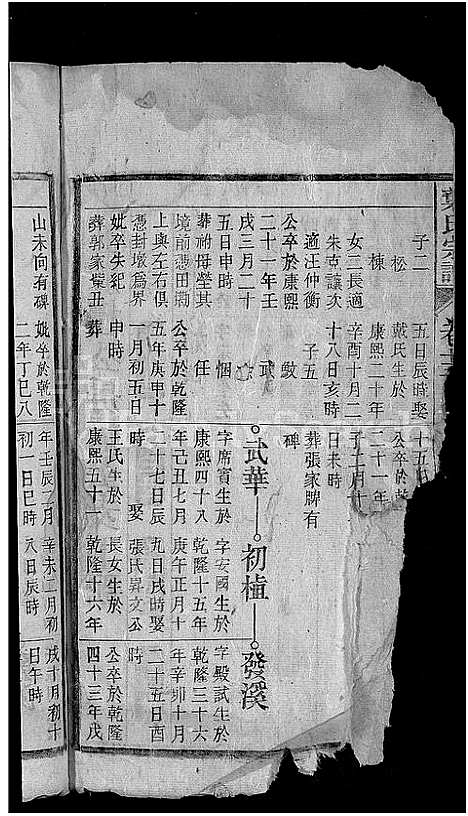 氏宗譜
卷十三
子二
松
棟
女三長適
朱克讓次
適汪仲衡
公卒於康熙
二十一年壬
戌三月二十
五日申時
葬祔母塋其
境前憑田㘭
上與左右俱
憑封壝為界
妣卒失紀
葬郭家嶺丑
山未向有碑
五日辰時娶
戴氏生於
康熙二十年
辛酉十月二
十八日亥時
子五
斅
武
悃
任
公卒於康熙
五年庚申十
一月初五日
申時
葬
妣卒於乾隆
二年丁巳八
十五
公卒於
二十一年
子十月十
日未時
葬張家脾有
碑
武華
字席賓生於
康熙四十八
年己丑七月
二十七日辰
時 娶
王氏生於
康熙五十一
年壬辰二月
初一日巳時
初植
字安國生於
乾隆十五年
庚午正月十
九日戌時娶
張氏昇文公
長女生於
乾隆十六年
辛未二月初
八日辰時
發溪
字殿試生於
乾隆三十六
年辛卯十月
二十五日酉
時
公卒於乾隆
四十三年戊
戌十月初十
日午時